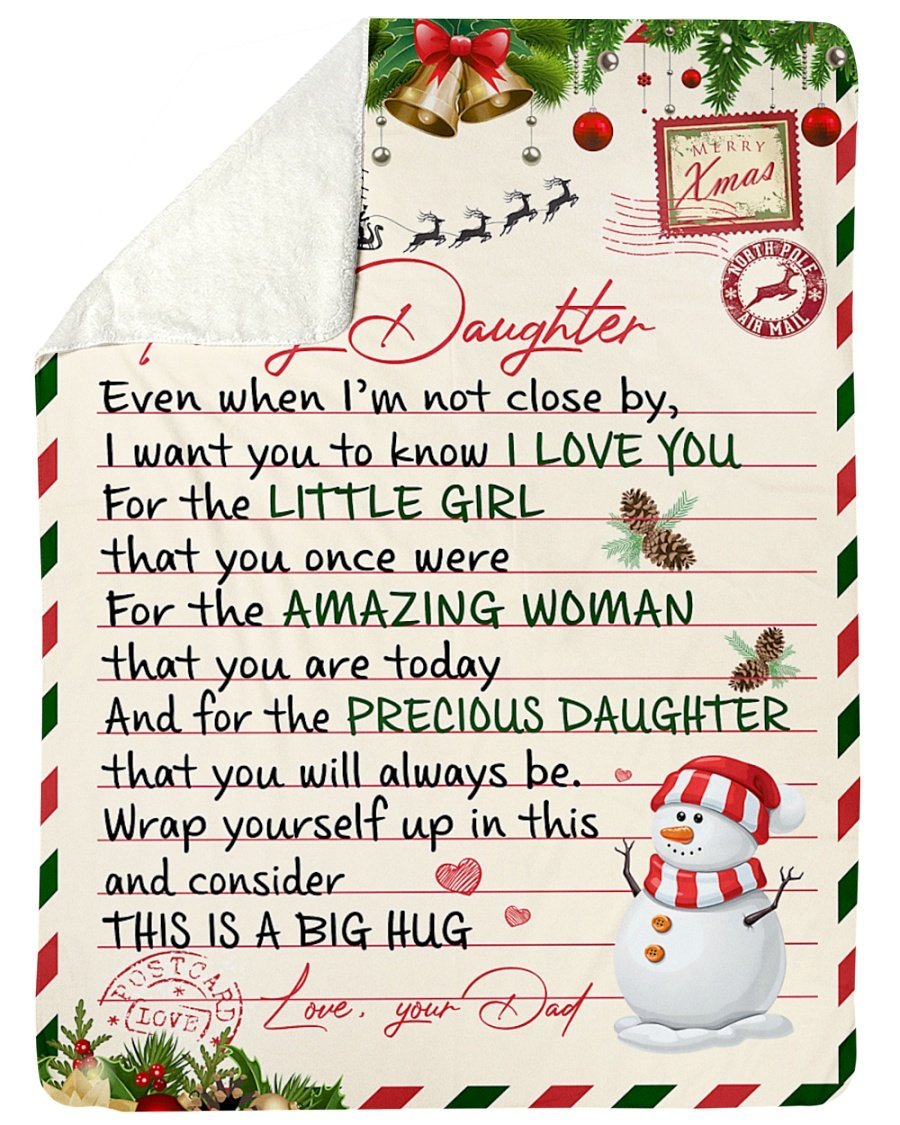 MERRY
Xmas
NORTH POLE
AIR MAIL
Daughter
Even when I'm not close by,
I want you to know I LOVE YOU
For the LITTLE GIRL
that you once were
For the AMAZING WOMAN
that you are today
And for the PRECIOUS DAUGHTER
that you will always be.
Wrap yourself up in this
and consider
THIS IS A BIG HUG
POSTCARD
LOVE
Love, your Dad